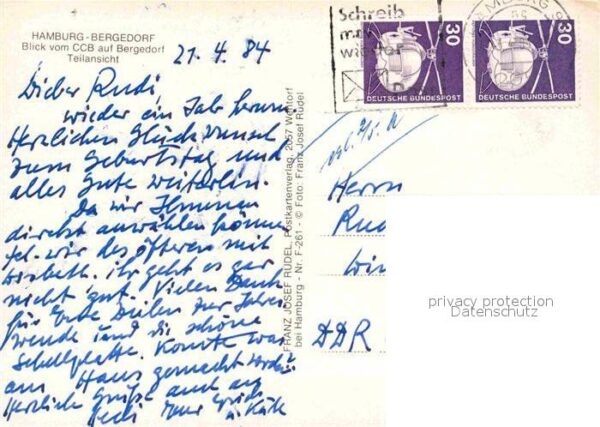 HAMBURG-BERGEDORF
Blick vom CCB auf Bergedorf
Teilansicht
21.4.84
Lieber Rudi,
wieder ein Jahr herum.
Herzlichen Glückwunsch
zum Geburtstag und
alles Gute weiterhin.
Da wir Ilmenau
direkt anwählen können
tel. wir des öfteren mit
ihr geht es gar
nicht gut. Vielen Dank
für Eure Zeilen zur Jahres
wende und die schöne
Schallplatte. Konnte was
am Haus gemacht werden?
Herzliche Grüße auch an
Euer Erich
u. Käth
FRANZ JOSEF RÜDEL, Postkartenverlag, 2057 Wentorf
bei Hamburg - Nr. F-261 - © Foto: Franz Josef Rüdel
Schreib
mal
wieder
30
DEUTSCHE BUNDESPOST
30
DEUTSCHE BUNDESPOST
Herrn
DDR
privacy protection
Datenschutz